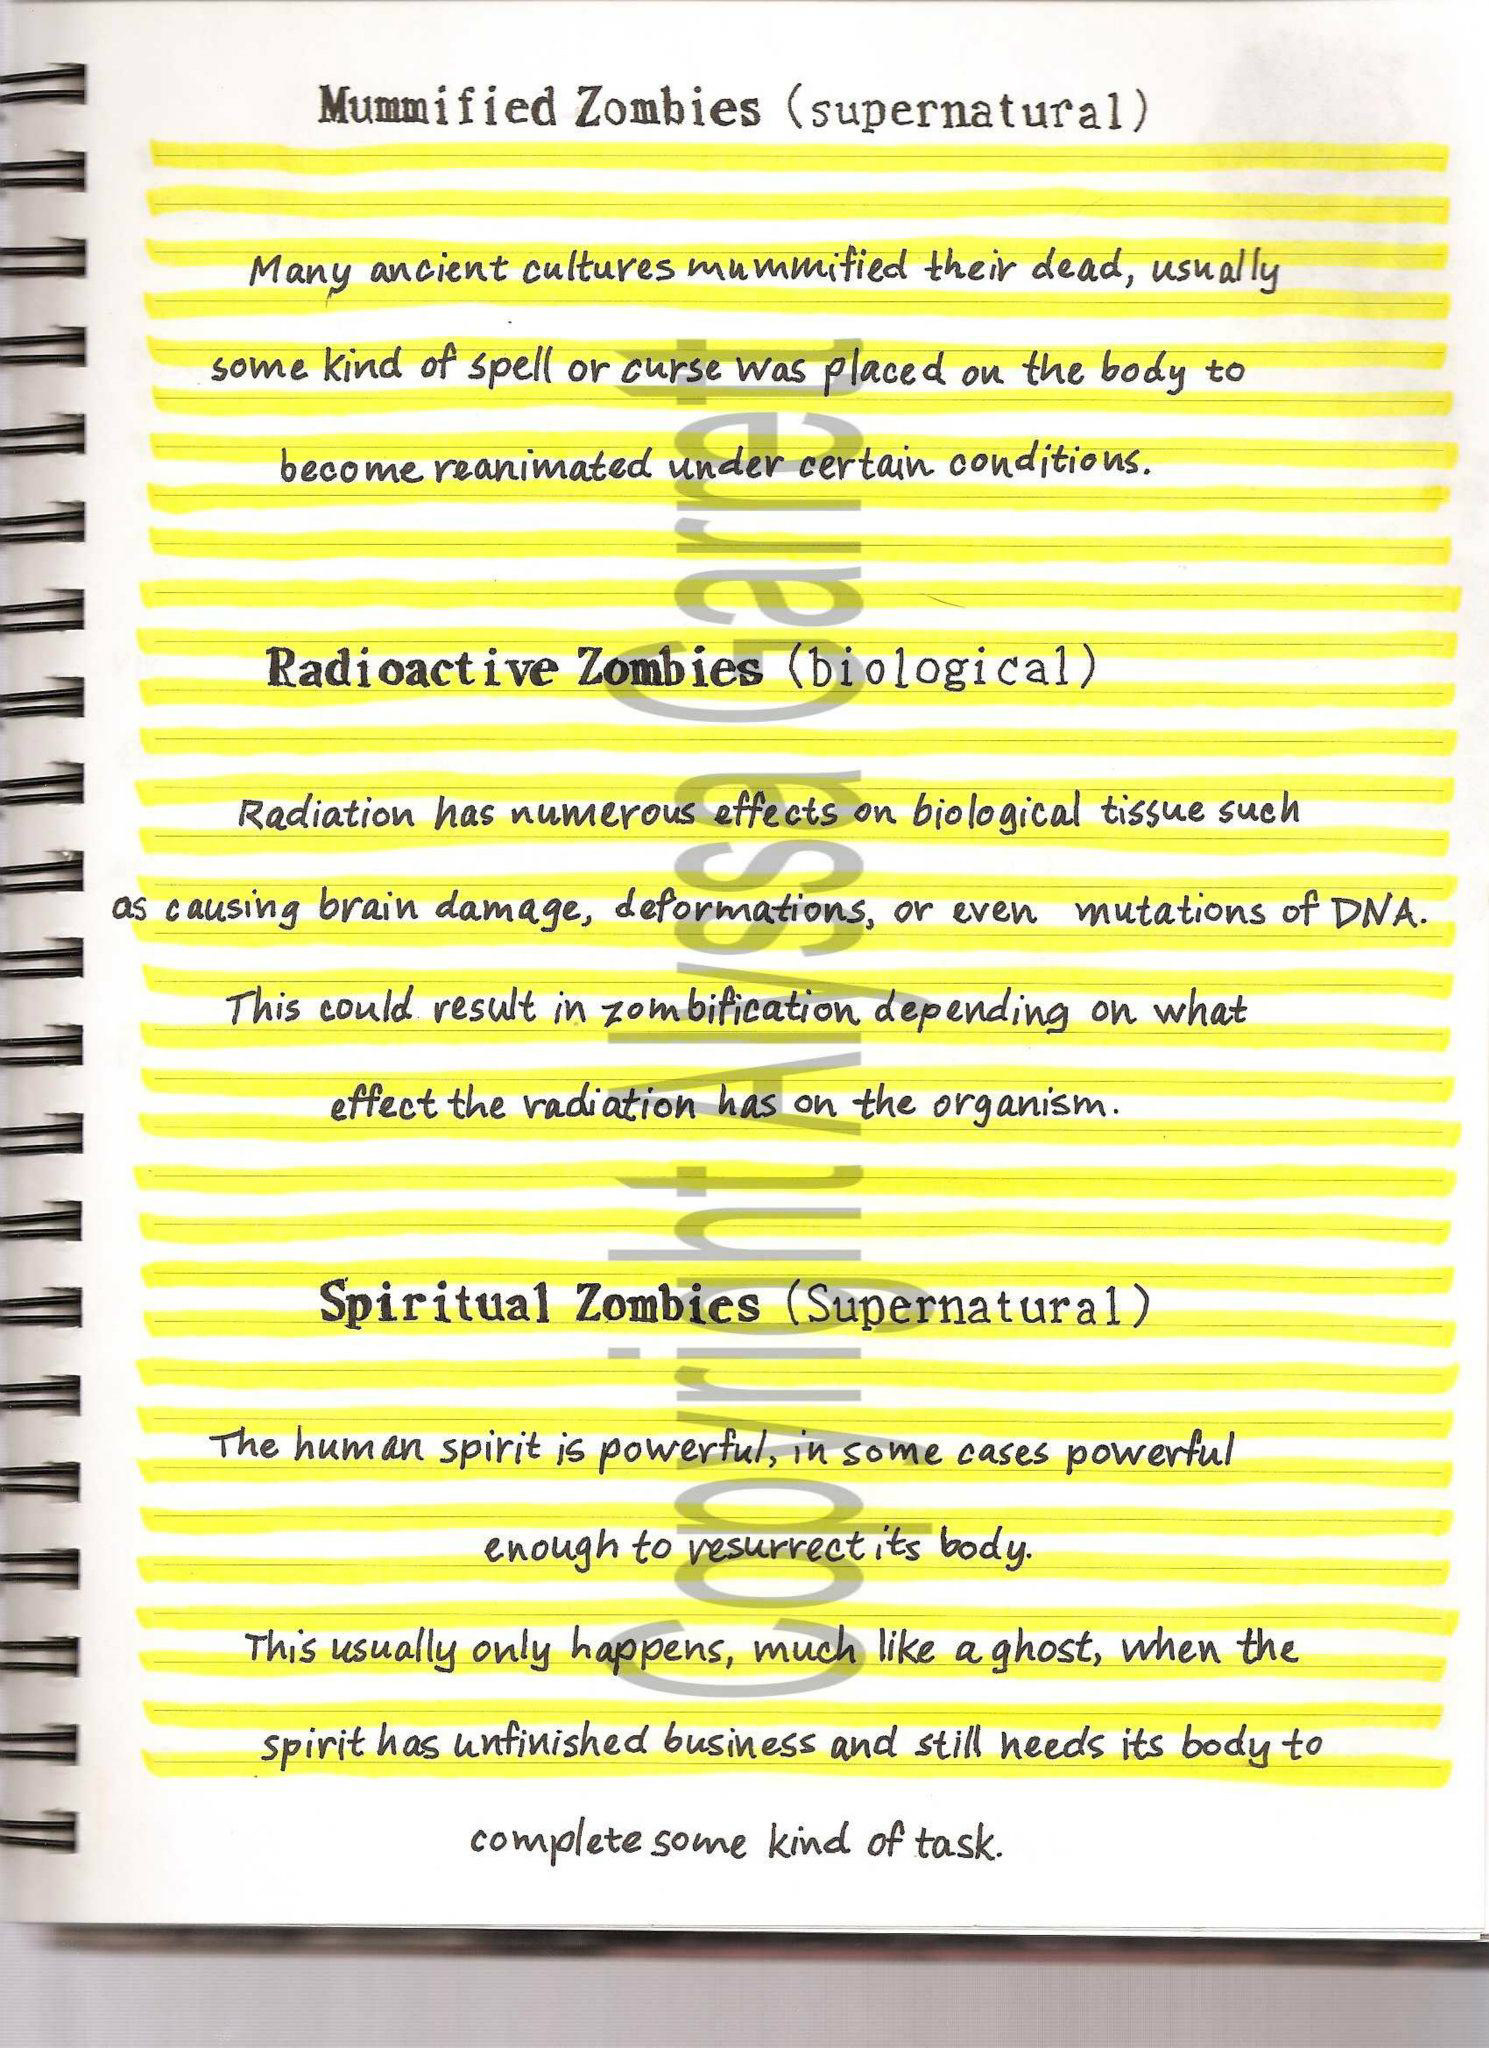 Mummified Zombies (supernatural)
Many ancient cultures mummified their dead, usually
some kind of spell or curse was placed on the body to
become reanimated under certain conditions.
Radioactive Zombies (biological)
Radiation has numerous effects on biological tissue such
as causing brain damage, deformations, or even mutations of DNA.
This could result in zombification depending on what
effect the radiation has on the organism.
Spiritual Zombies (Supernatural)
The human spirit is powerful, in some cases powerful
enough to resurrect its body.
This usually only happens, much like a ghost, when the
spirit has unfinished business and still needs its body to
complete some kind of task.
Copyright Alyssa Garrett